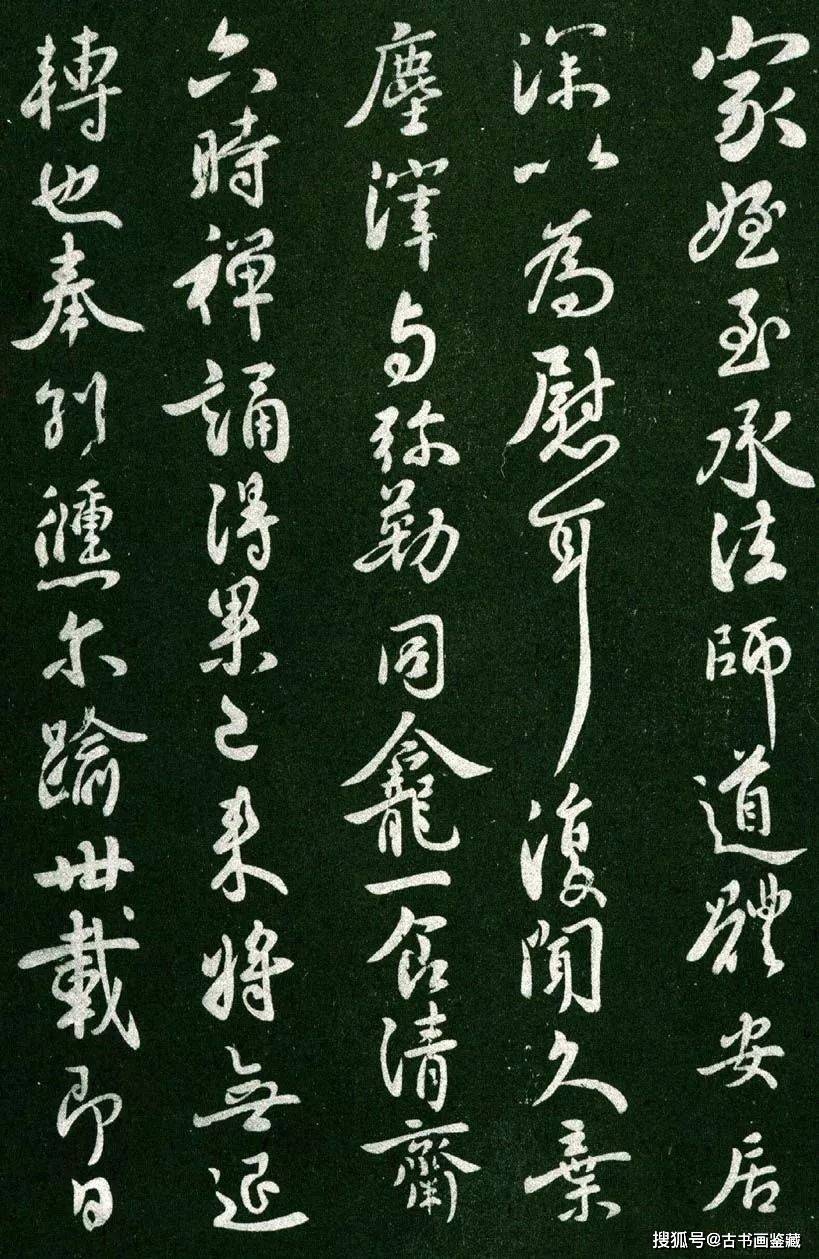 家姪至承法師道體安居
深以為慰耳復聞久棄
塵滓与弥勒同龕一食清齋
六時禪誦得果已來將無退
轉也奉别倐尔踰卅載即日
搜狐号@古书画鉴藏